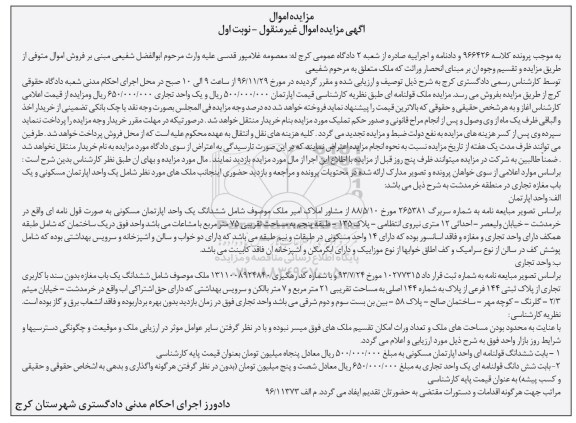 مزایده اموال
آگهی مزایده اموال غیرمنقول - نوبت اول
به موجب پرونده کلاسه ۹۶۶۴۲۶ و دادنامه و اجراییه صادره از شعبه ۲ دادگاه عمومی کرج له: معصومه غلامپور قدسی علیه وراث مرحوم ابوالفضل شفیعی مبنی بر فروش اموال متوفی از
طریق مزایده و تقسیم وجوه آن بر مبنای انحصار وراثت که ملک متعلق به مرحوم شفیعی
توسط کارشناس رسمی دادگستری کرج به شرح ذیل توصیف و ارزیابی شده و مقرر گردیده در مورخ ۹۶/۱۱/۲۹ از ساعت ۹ الی ۱۰ صبح در محل اجرای احکام مدنی شعبه دادگاه حقوقی
کرج از طریق مزایده بفروش می رسد. مزایده ملک قولنامه ای طبق نظریه کارشناسی قیمت آپارتمان ۵۰۰/۰۰۰/۰۰۰ ریال و یک واحد تجاری ۶۵۰/۰۰۰/۰۰۰ ریال ومزایده از قیمت اعلامی
کارشناس آغاز و به هرشخص حقیقی و حقوقی که بالاترین قیمت را پیشنهاد نماید فروخته خواهد شد ده درصد وجه مزایده فی المجلس بصورت وجه نقد یا چک بانکی تضمینی از خریدار اخذ
والباقی ظرف یک ماه از وی وصول و پس از انجام مراحل قانونی و صدور حکم تملیک مورد مزایده بنام خریدار منتقل خواهد شد. درصورتیکه در مهلت مقرر خریدار وجه مزایده را پرداخت ننماید
سپرده وی پس از کسر هزینه های مزایده به نفع دولت ضبط و مزایده تجدید می گردد. کلیه هزینه های نقل و انتقال به عهده محکوم علیه است که از محل فروش پرداخت خواهد شد. طرفین
می توانند ظرف مدت یک هفته از تاریخ مزایده نسبت به نحوه انجام مزایده اعتراض نمایند که در این صورت تا رسیدگی به اعتراض از سوی دادگاه مورد مزایده به نام خریدار منتقل نخواهد شد
. ضمنا طالبین به شرکت در مزایده میتوانند ظرف پنج روز قبل از مزایده با اطلاع این اجرا از مال مورد مزایده بازدید نمایند. مال مورد مزایده و بهای آن طبق نظر کارشناس بدین شرح است:
براساس موارد اعلامی از سوی خواهان پرونده و تصویر مدارک ارائه شده در محتویات پرونده و مراجعه و بازدید حضوری اینجانب ملک های مورد نظر شامل یک واحد آپارتمان مسکونی و یک
باب مغازه تجاری در منطقه خرمدشت به شرح ذیل می باشد:
الف: واحد آپارتمان
براساس تصویر مبایعه نامه به شماره سربرگ ۲۶۵۳۸۱ مورخ ۸۸/۵/۱۰ از مشاور املاک امیر ملک موصوف شامل ششدانگ یک واحد آپارتمان مسکونی به صورت قول نامه ای واقع در
خرمدشت - خیابان ولیعصر - احداثی ۱۲ متری نیروی انتظامی - پلاک ۱۳۵ - طبقه پنجم به مساحت تقریبی ۷۵ متر مربع با مشاعات می باشد واحد فوق دریک ساختمان که شامل طبقه
همکف دارای واحد تجاری و مغازه و فاقد آسانسور بوده که دارای ۱۴ واحد مسکونی در طبقات و نیم طبقه می باشد که دارای دو خواب و سالن و آشپزخانه و سرویس بهداشتی بوده که شامل
پوشش کف در سالن از نوع سرامیک و کف اطاق خوابها از نوع موزاییک و دارای آبگرمکن و آشپزخانه آن فاقد کابینت می باشد.
ب: واحد تجاری
براساس تصویر مبایعه نامه به شماره ثبت قرار داد ۱۰۲۷۷۳۱۵ مورخ ۹۳/۷/۲۴ و با شماره کدرهگیری ۱۳۱۱۰۰۸۹۲۴۸۴۰ ملک موصوف شامل ششدانگ یک باب مغازه بدون سند با کاربری
تجاری از پلاک ثبتی ۱۴۴ فرعی از پلاک به شماره ۱۴۴ اصلی به مساحت تقریبی ۲۱ متر مربع و ۷ متر بالکن و سرویس بهداشتی که دارای حق اشتراکی آب واقع در خرمدشت - خیابان میثم
۲/۳ - گلرنگ - کوچه مهر - ساختمان صالح - پلاک ۵۸ - بین بن بست سوم و دوم شرقی می باشد واحد تجاری فوق در زمان بازدید بدون بهره برداربوده و فاقد انشعاب برق و گاز بوده است.
نظریه کارشناسی:
با عنایت به محدود بودن مساحت های ملک و تعداد وراث امکان تقسیم ملک های فوق میسر نبوده و با در نظر گرفتن سایر عوامل موثر در ارزیابی ملک و موقعیت و چگونگی دسترسیها و
شرایط روز بازار واحد فوق به شرح ذیل مورد ارزیابی و اعلام می گردد.
۱ - بابت ششدانگ قولنامه ای واحد آپارتمان مسکونی به مبلغ ۵۰۰/۰۰۰/۰۰۰ ریال معادل پنجاه میلیون تومان بعنوان قیمت پایه کارشناسی
۲- بابت شش دانگ قولنامه ای یک واحد تجاری به مبلغ ۶۵۰/۰۰۰/۰۰۰ ریال معادل شصت و پنج میلیون تومان (بدون در نظر گرفتن هرگونه واگذاری و بدهی به اشخاص حقوقی و حقیقی
و کسب پیشه) به عنوان قیمت پایه کارشناسی
مراتب جهت هرگونه اقدامات و دستورات مقتضی به حضورتان تقدیم ایفاد می گردد. م الف ۹۶/۱۱۳۷۳
دادورز اجرای احکام مدنی دادگستری شهرستان کرج